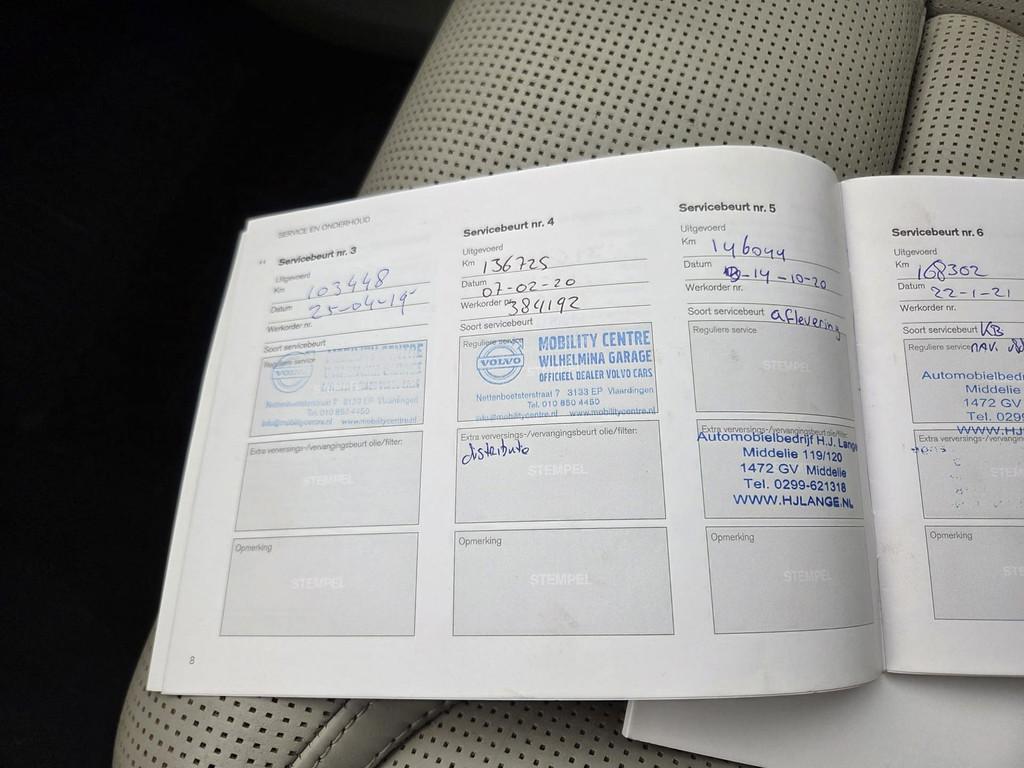 SERVICE EN ONDERHOUD
Servicebeurt nr. 3
Uitgevoerd
Km 103448
Datum 25-04-19
Werkorder nr.
Soort servicebeurt
Reguliere service
VOLVO
MOBILITY CENTRE
WILHELMINA GARAGE
OFFICIEEL DEALER VOLVO CARS
Nettenboetsterstraat 7 3133 EP Vlaardingen
Tel. 010 850 4450
info@mobilitycentre.nl www.mobilitycentre.nl
Extra verversings-/vervangingsbeurt olie/filter:
STEMPEL
Opmerking
STEMPEL
8
Servicebeurt nr. 4
Uitgevoerd
Km 136725
Datum 07-02-20
Werkorder nr. 384192
Soort servicebeurt
Reguliere service
VOLVO
MOBILITY CENTRE
WILHELMINA GARAGE
OFFICIEEL DEALER VOLVO CARS
Nettenboetsterstraat 7 3133 EP Vlaardingen
Tel. 010 850 4450
info@mobilitycentre.nl www.mobilitycentre.nl
Extra verversings-/vervangingsbeurt olie/filter:
distributie
STEMPEL
Opmerking
STEMPEL
Servicebeurt nr. 5
Uitgevoerd
Km 146044
Datum 14-10-20
Werkorder nr.
Soort servicebeurt aflevering
Reguliere service
STEMPEL
Extra verversings-/vervangingsbeurt olie/filter:
Automobielbedrijf H.J. Lange
Middelie 119/120
1472 GV Middelie
Tel. 0299-621318
WWW.HJLANGE.NL
Opmerking
STEMPEL
Servicebeurt nr. 6
Uitgevoerd
Km 168302
Datum 22-1-21
Werkorder nr.
Soort servicebeurt KB
Reguliere service nav.
Automobielbedr
Middelie
1472 GV
Tel. 0299
WWW.HJ
Extra verversings-/vervangin
STE
Opmerking
STE